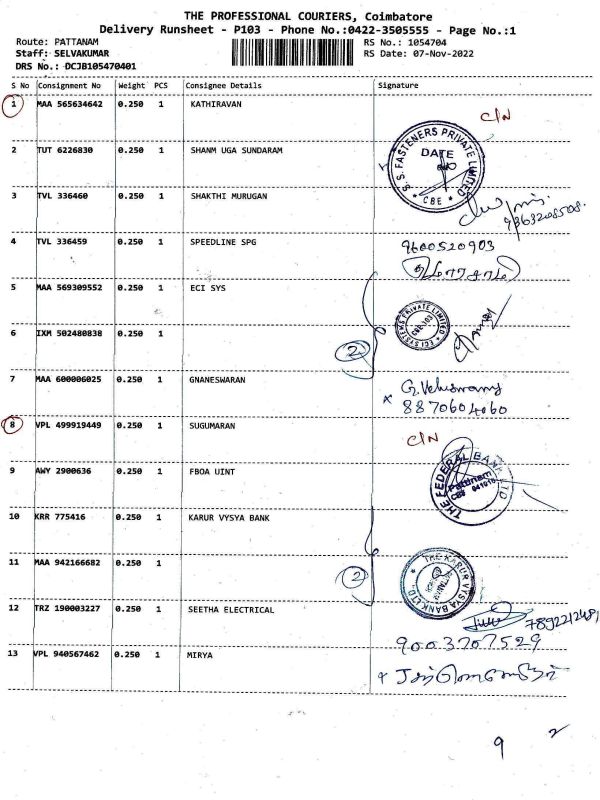 THE PROFESSIONAL COURIERS, Coimbatore
Delivery Runsheet - P103 - Phone No.:0422-3505555 - Page No.:1
Route: PATTANAM RS No.: 1054704
Staff: SELVAKUMAR RS Date: 07-Nov-2022
DRS No.: DCJB105470401
S No Consignment No Weight PCS Consignee Details Signature
1 MAA 565634642 0.250 1 KATHIRAVAN C/N
2 TUT 6226830 0.250 1 SHANM UGA SUNDARAM
S. S. FASTENERS PRIVATE LIMITED
DATE
* CBE *
3 TVL 336460 0.250 1 SHAKTHI MURUGAN
9363208508
4 TVL 336459 0.250 1 SPEEDLINE SPG 9600520903
5 MAA 569309552 0.250 1 ECI SYS
ECI SYSTEMS PRIVATE LIMITED
CBE-103
6 IXM 502480838 0.250 1 2
7 MAA 600006025 0.250 1 GNANESWARAN G. Veluswamy
8870604060
8 VPL 499919449 0.250 1 SUGUMARAN C/N
9 AWY 2900636 0.250 1 FBOA UINT
THE FEDERAL BANK LTD
Pattinam
CBE 641016
10 KRR 775416 0.250 1 KARUR VYSYA BANK
11 MAA 942166682 0.250 1 2
THE KARUR VYSYA BANK LTD
12 TRZ 190003227 0.250 1 SEETHA ELECTRICAL
9003707529
13 VPL 940567462 0.250 1 MIRYA
9 2